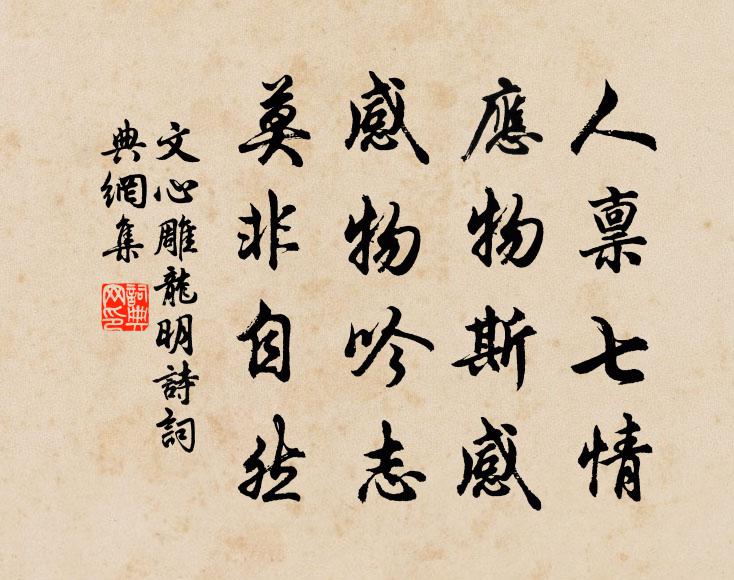 人禀七情
應物斯感
感物吟志
莫非自然
文心雕龍明詩詞
典網集
詞典
网印